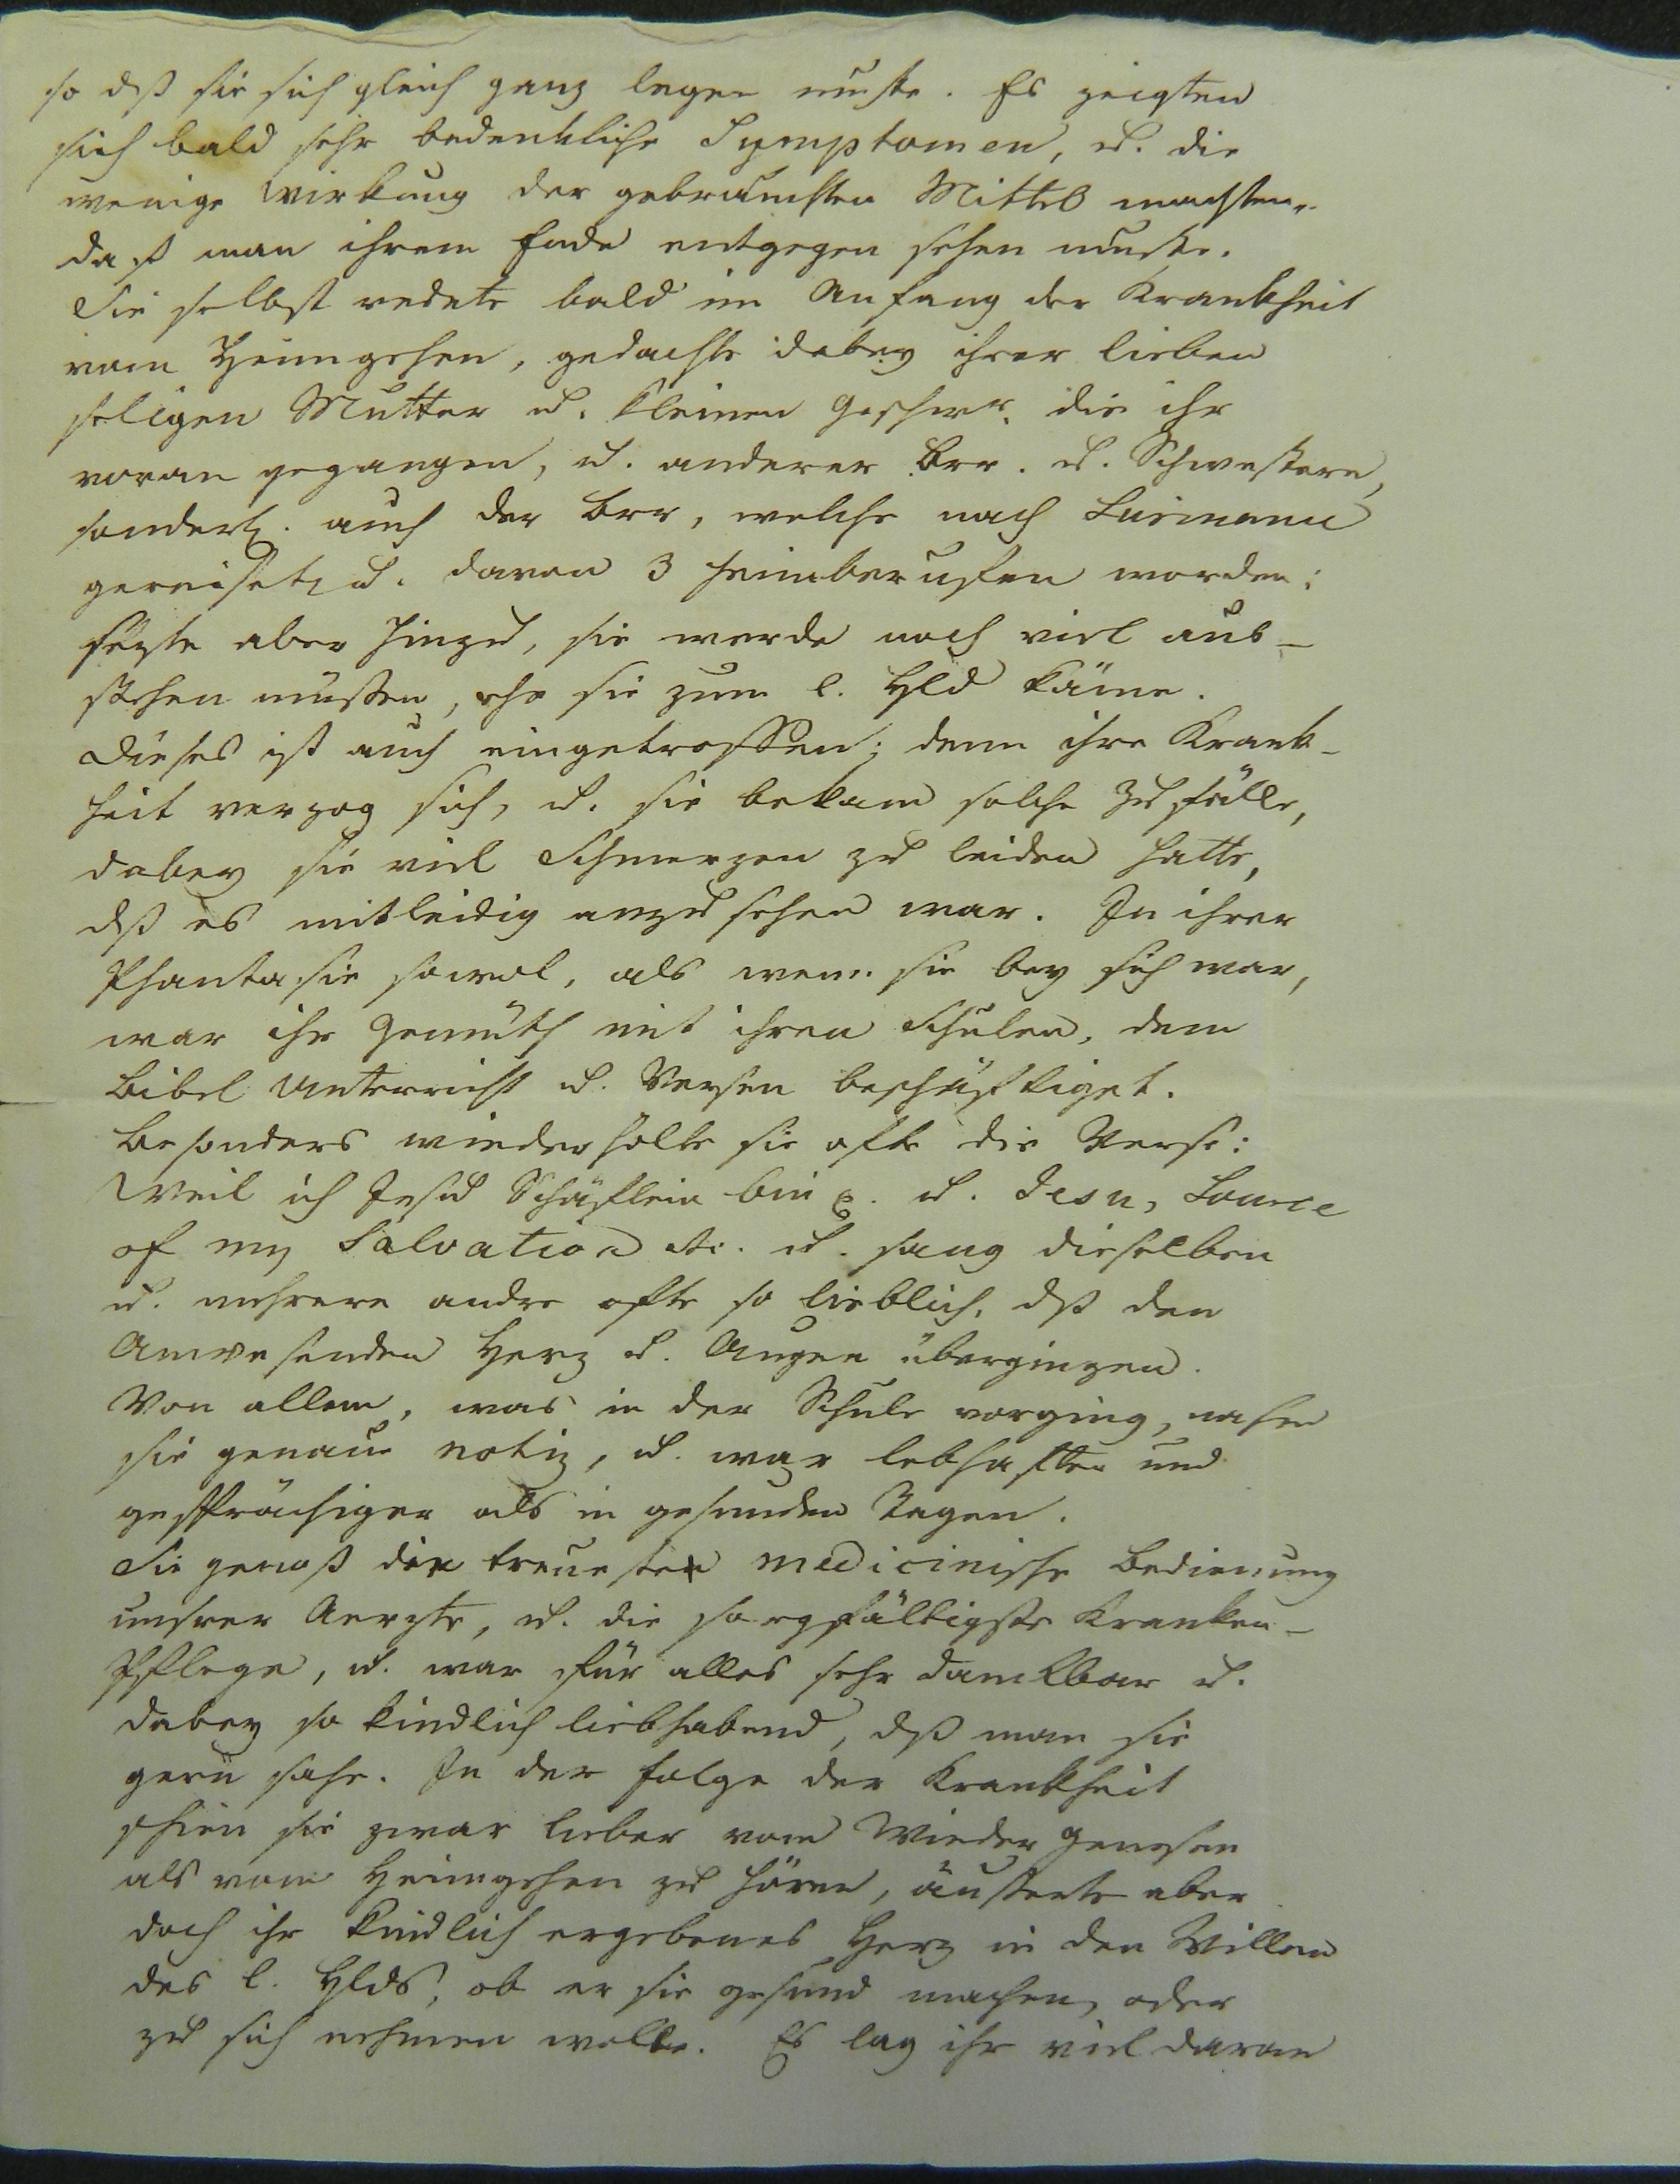 so dß sie sich gleich ganz legen mußte. Es zeigten
sich bald sehr bedenkliche Symptomen, u. die
wenige Wirkung der gebrauchten Mittel machten,
daß man ihrem Ende entgegen sehen mußte.
Sie selbst redete bald im Anfang der Krankheit
vom Heimgehen, gedachte dabey ihrer lieben
seligen Mutter u. kleinen Geschwr. die ihr
voran gegangen, u. anderer Brr. u. Schwestern,
sonderl. auch der Brr, welche nach
gereiset, u. davon 3 heimberuffen worden:
sezte aber hinzu, sie werde noch viel aus-
stehen müssen, ehe sie zum l. Hld käme.
Dieses ist auch eingetroffen; denn ihre Krank-
heit verzog sich, u. sie bekam solche Zufälle,
dabey sie viel Schmerzen zu leiden hatte,
dß es mitleidig anzusehen war. In ihrer
Phantasie sowol, als wenn sie bey sich war,
war ihr Gemüth mit ihren Schulen, dem
Bibel Unterricht u. Versen beschäftiget.
Besonders wiederholte sie ofte die Verse:
Weil ich Jesu Schäflein bin p. u. Jesu, Source
of my Salvation etc. u. sang dieselben
u. mehrere andre ofte so lieblich, dß den
Anwesenden Herz u. Augen übergingen.
Von allem, was in der Schule vorging, nahm
sie genau notiz, u. war lebhafter und
gesprächiger als in gesunden Tagen.
Sie genoß die treueste medicinische Bedienung
unsrer Aerzte, u. die sorgfältigste Kranken-
Pflege, u. war für alles sehr dankbar u.
dabey so kindlich liebhabend, dß man sie
gern sahe. In der Folge der Krankheit
schien sie zwar lieber vom Wieder Genesen
als vom Heimgehen zu hören, äußerte aber
doch ihr kindlich ergebenes Herz in den Willen
des l. Hlds, ob er sie gesund machen, oder
zu sich nehmen wolle. Es lag ihr viel daran